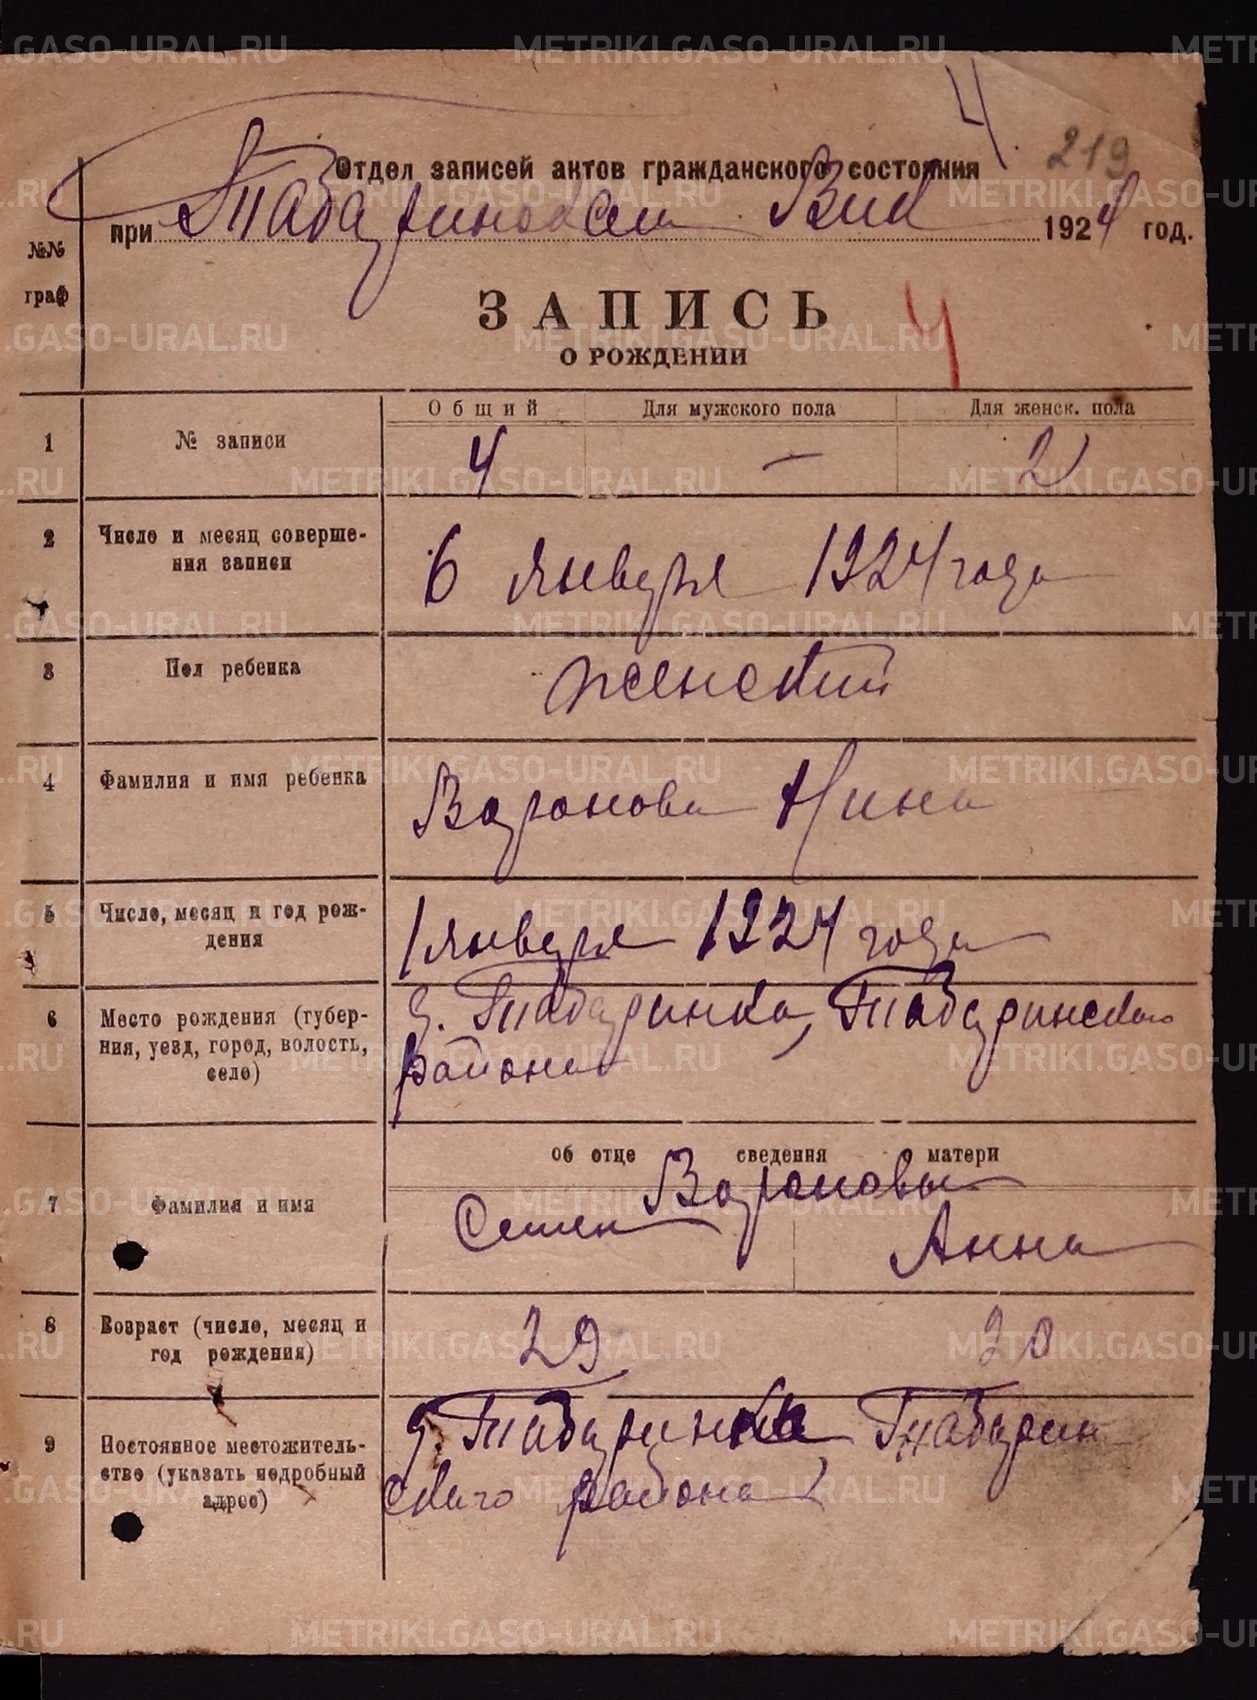 4. 219
Отдел записей актов гражданского состояния
при Табаринском Вик 1924 год.
№№ граф
ЗАПИСЬ
4
О РОЖДЕНИИ
Общий Для мужского пола Для женск. пола
1 № записи 4 — 2
2 Число и месяц соверше-
ния записи
6 января 1924 года
3 Пол ребенка женский
4 Фамилия и имя ребенка Варонова Нина
5 Число, месяц и год рож-
дения
1 января 1924 года
6 Место рождения (губер-
ния, уезд, город, волость,
село)
д. Табаринка, Табаринского
района
об отце сведения матери
7 Фамилия и имя
Вароновы
Семен Анна
8 Возраст (число, месяц и
год рождения)
29 20
9 Постоянное местожитель-
ство (указать подробный
адрес)
д. Табаринка Табарин
ского района
METRIKI.GASO-URAL.RU